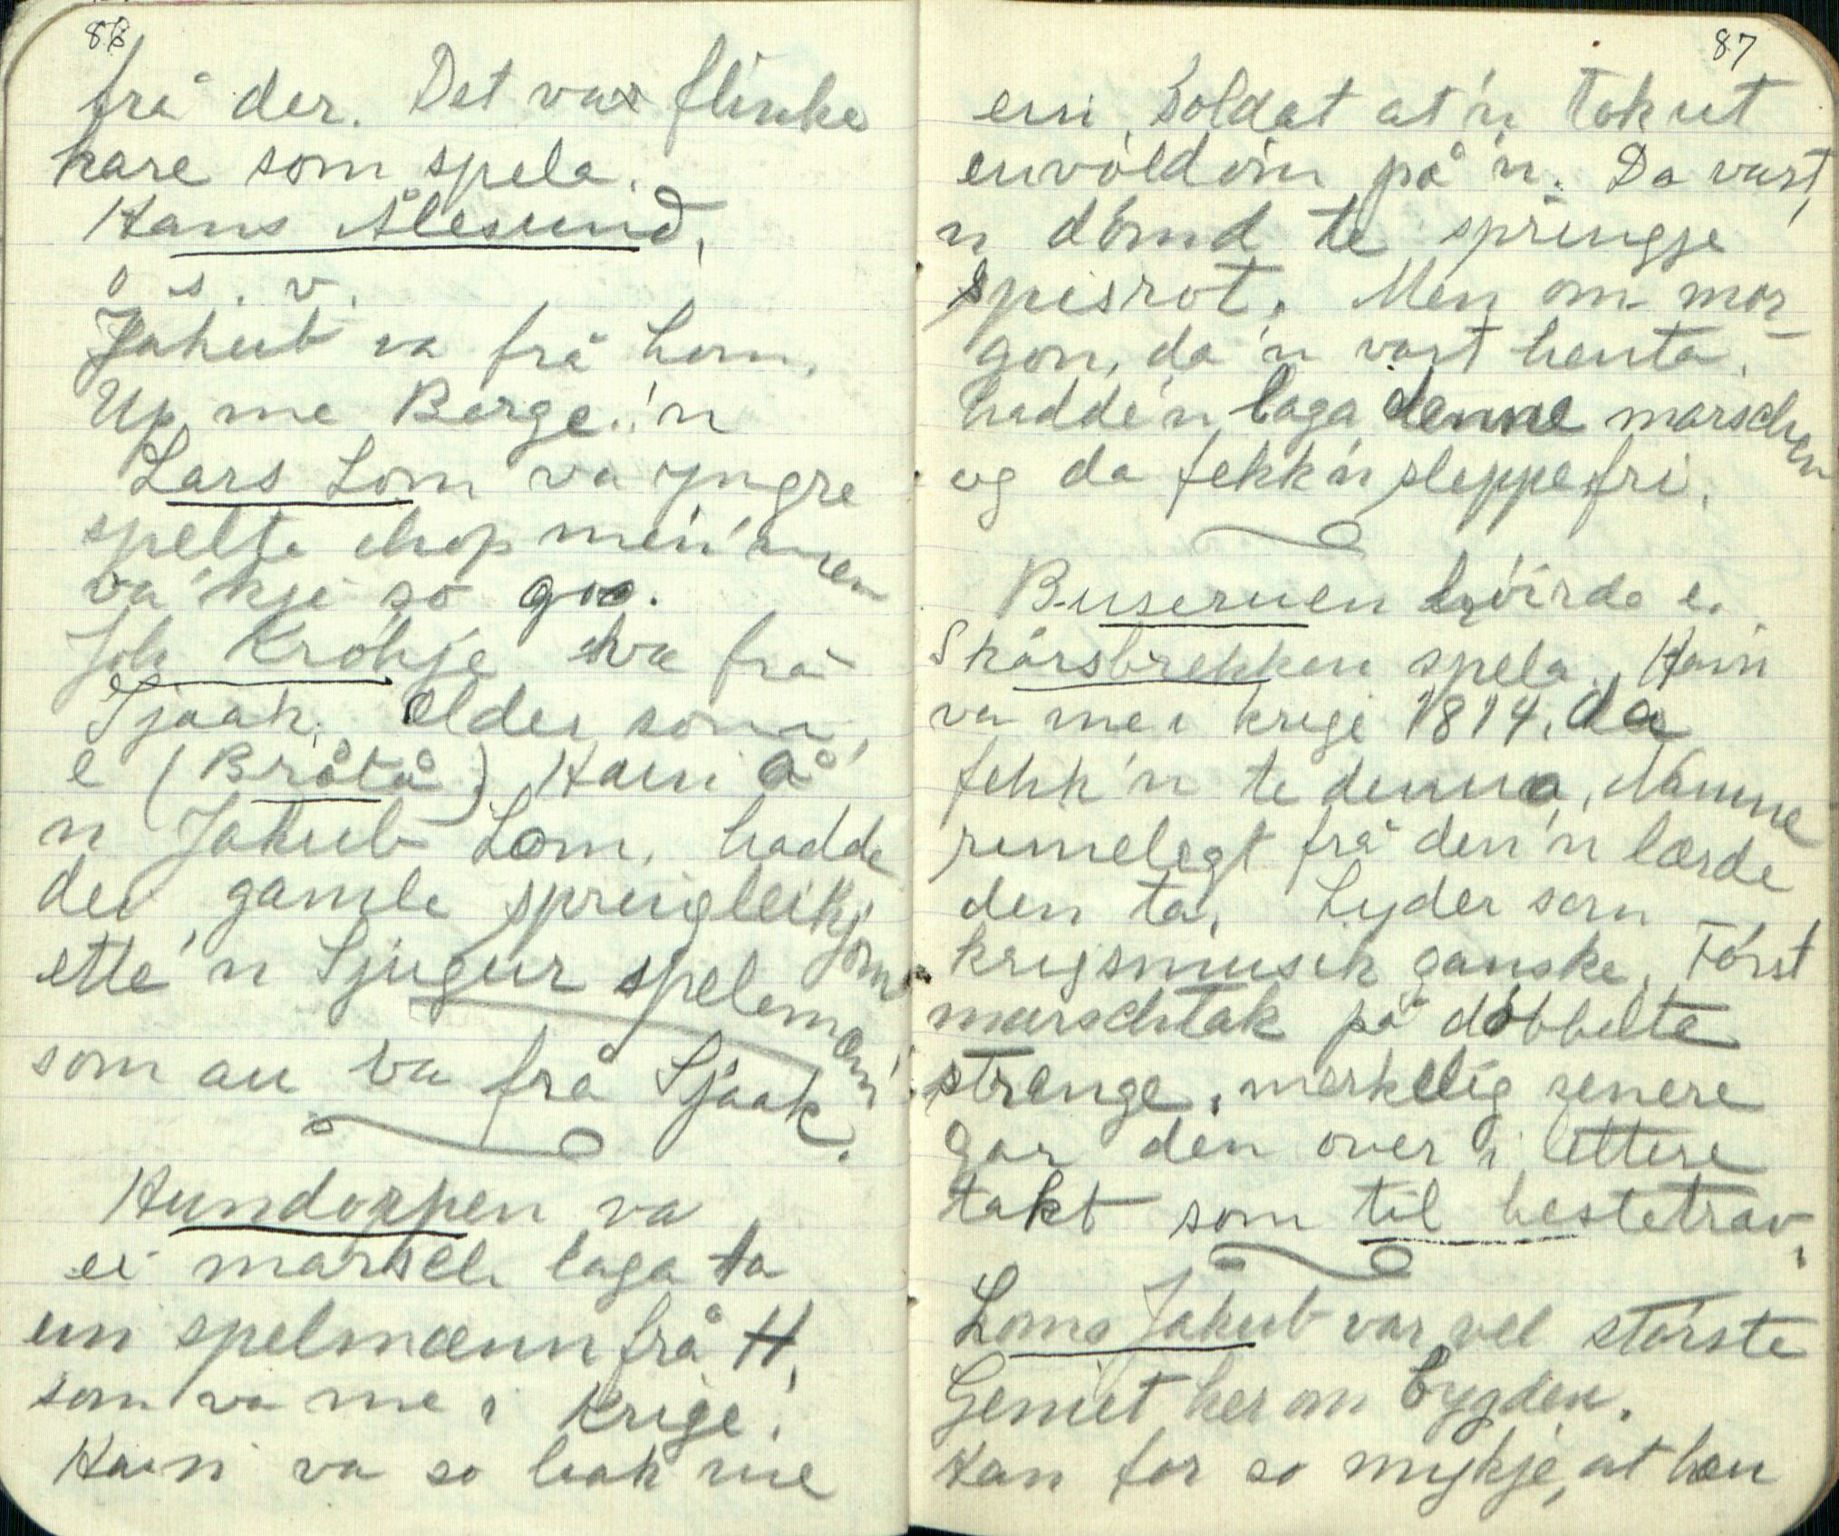 86
frå der. Det var flinke
kare som spela.
Hans Ålesund,
o s. v.
Jakub va frå Lom.
Up me Berge.'n
Lars Lom va yngre
spelte ihop me'n men
va 'kje so goo.
Joh Krökje va frå
Sjaak. Elder som
e (Bråtå) Hain å
n Jakub Lom. hadde
dei gamle springleikjom
ette 'n Sjugur spelemæn
som au va frå Sjaak.
Hundorpen va
ei marsch laga ta
ein spelmænn frå H,
som va me i krige.
Hain va so hak me
87
ein Soldat at 'n tok ut
på 'n. Da vart
n dömd te springje
spisrot. Men om mor-
gon, da 'n vart henta,
hadde'n laga denne marschen
og da fekk'n sleppe fri.
Buseruen höirde e
Skårsbrekken spela. Hain
va me i krige 1814. da
fekk'n te denna. Namne
rimelegt frå den'n lærde
den ta. Lyder som
krigsmusik ganske. Först
marschtak på döbbelte
strenge, merkelig senere
gar den over i lettere
takt som til hestetrav.
Loms Jakub var vel störste
Geniet her om bygden.
Han for so mykje, at han